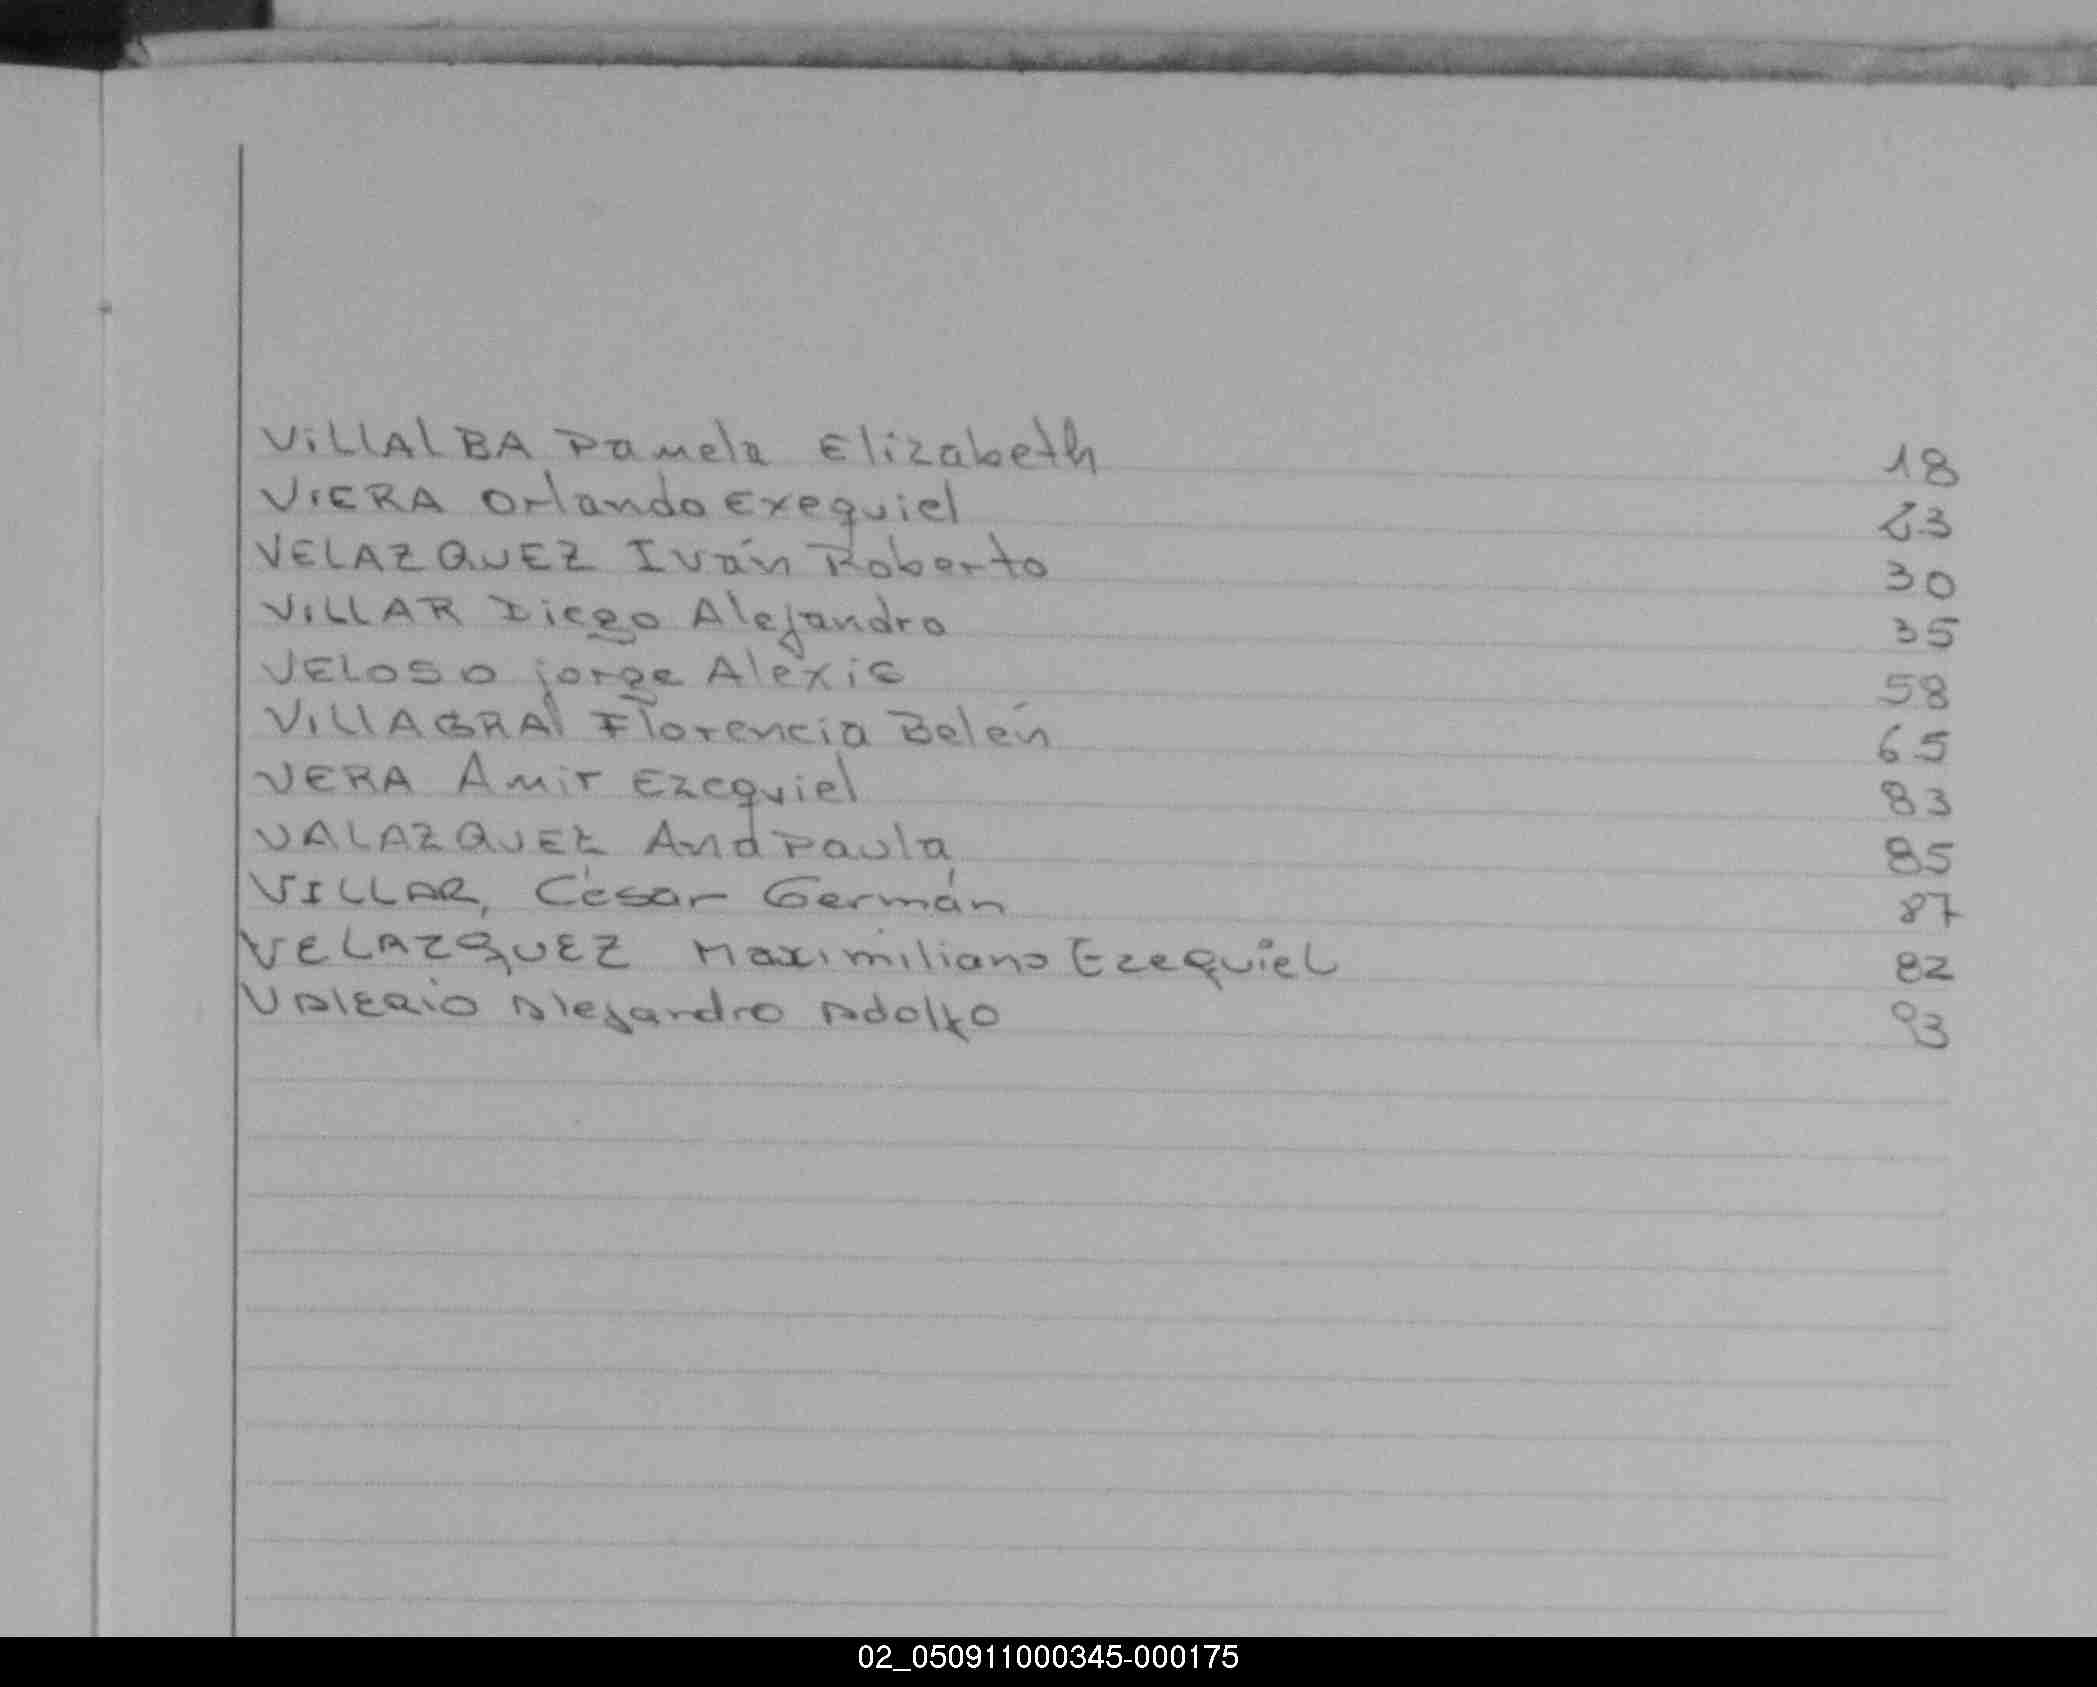 VILLALBA Pamela Elizabeth 18
VIERA Orlando Exequiel 23
VELAZQUEZ Iván Roberto 30
VILLAR Diego Alejandro 35
VELOSO jorge Alexis 58
VILLAGRA Florencia Belén 65
VERA Amir Ezequiel 83
VALAZQUEZ Ana Paula 85
VILLAR, César Germán 87
VELAZQUEZ Maximiliano Ezequiel 82
VALERIO Alejandro Adolfo 93
02_050911000345-000175